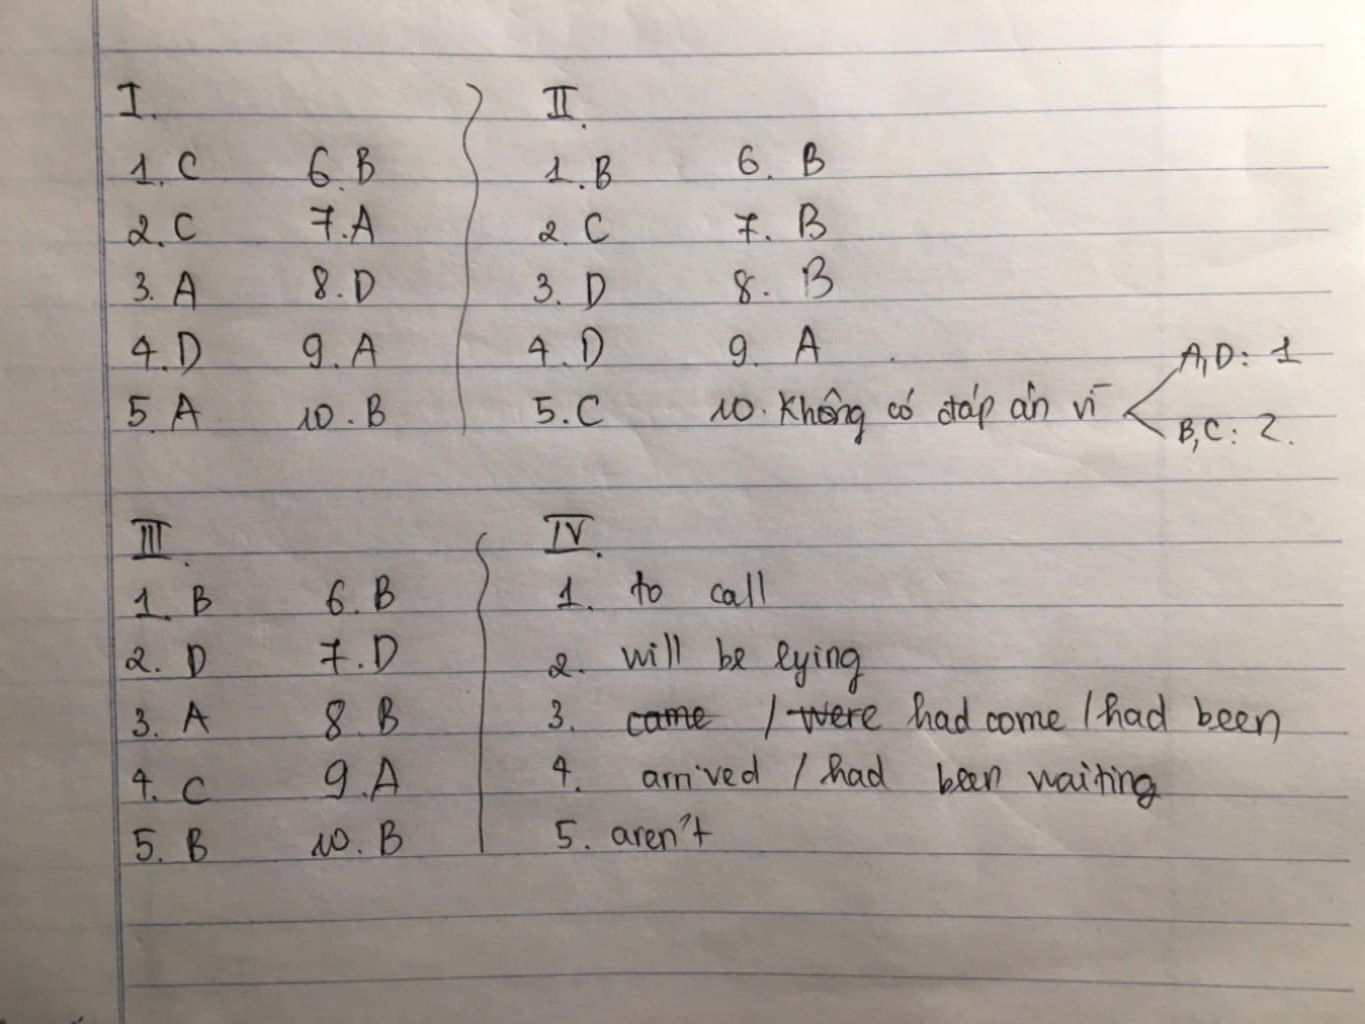 I. II.
1. C 6. B 1. B 6. B
2. C 7. A 2. C 7. B
3. A 8. D 3. D 8. B
4. D 9. A 4. D 9. A A,D: 1
5. A 10. B 5. C 10. Không có đáp án vì B,C: 2.
III. IV.
1. B 6. B 1. to call
2. D 7. D 2. will be lying
3. A 8. B 3. came / were had come / had been
4. C 9. A 4. arrived / had been waiting
5. B 10. B 5. aren't